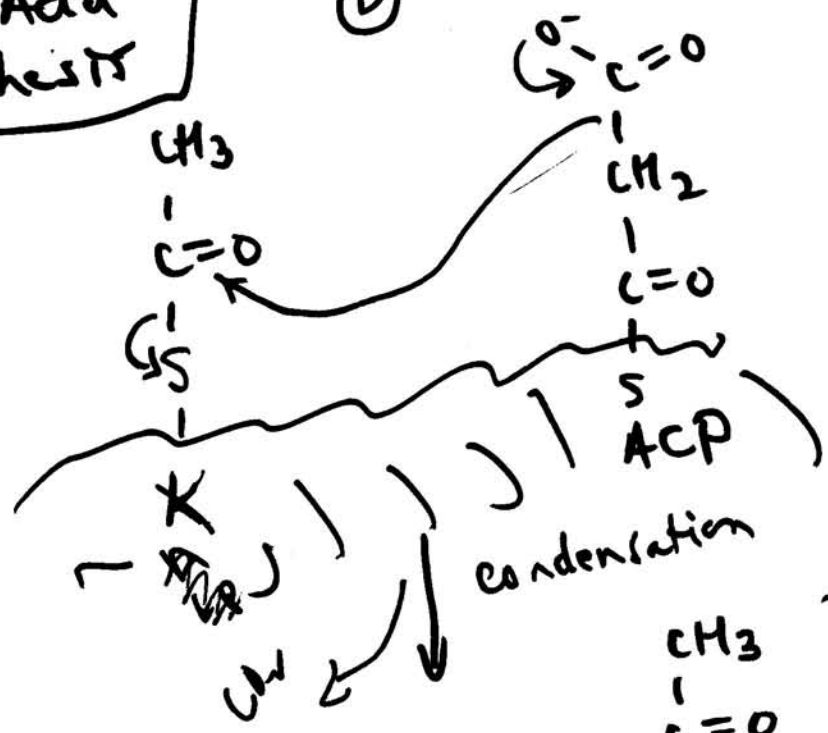 Acid
hesis
CH3
|
C=O
|
S
|
K
O⁻
C=O
|
CH2
|
C=O
|
S
ACP
condensation
CH3
|
C=O